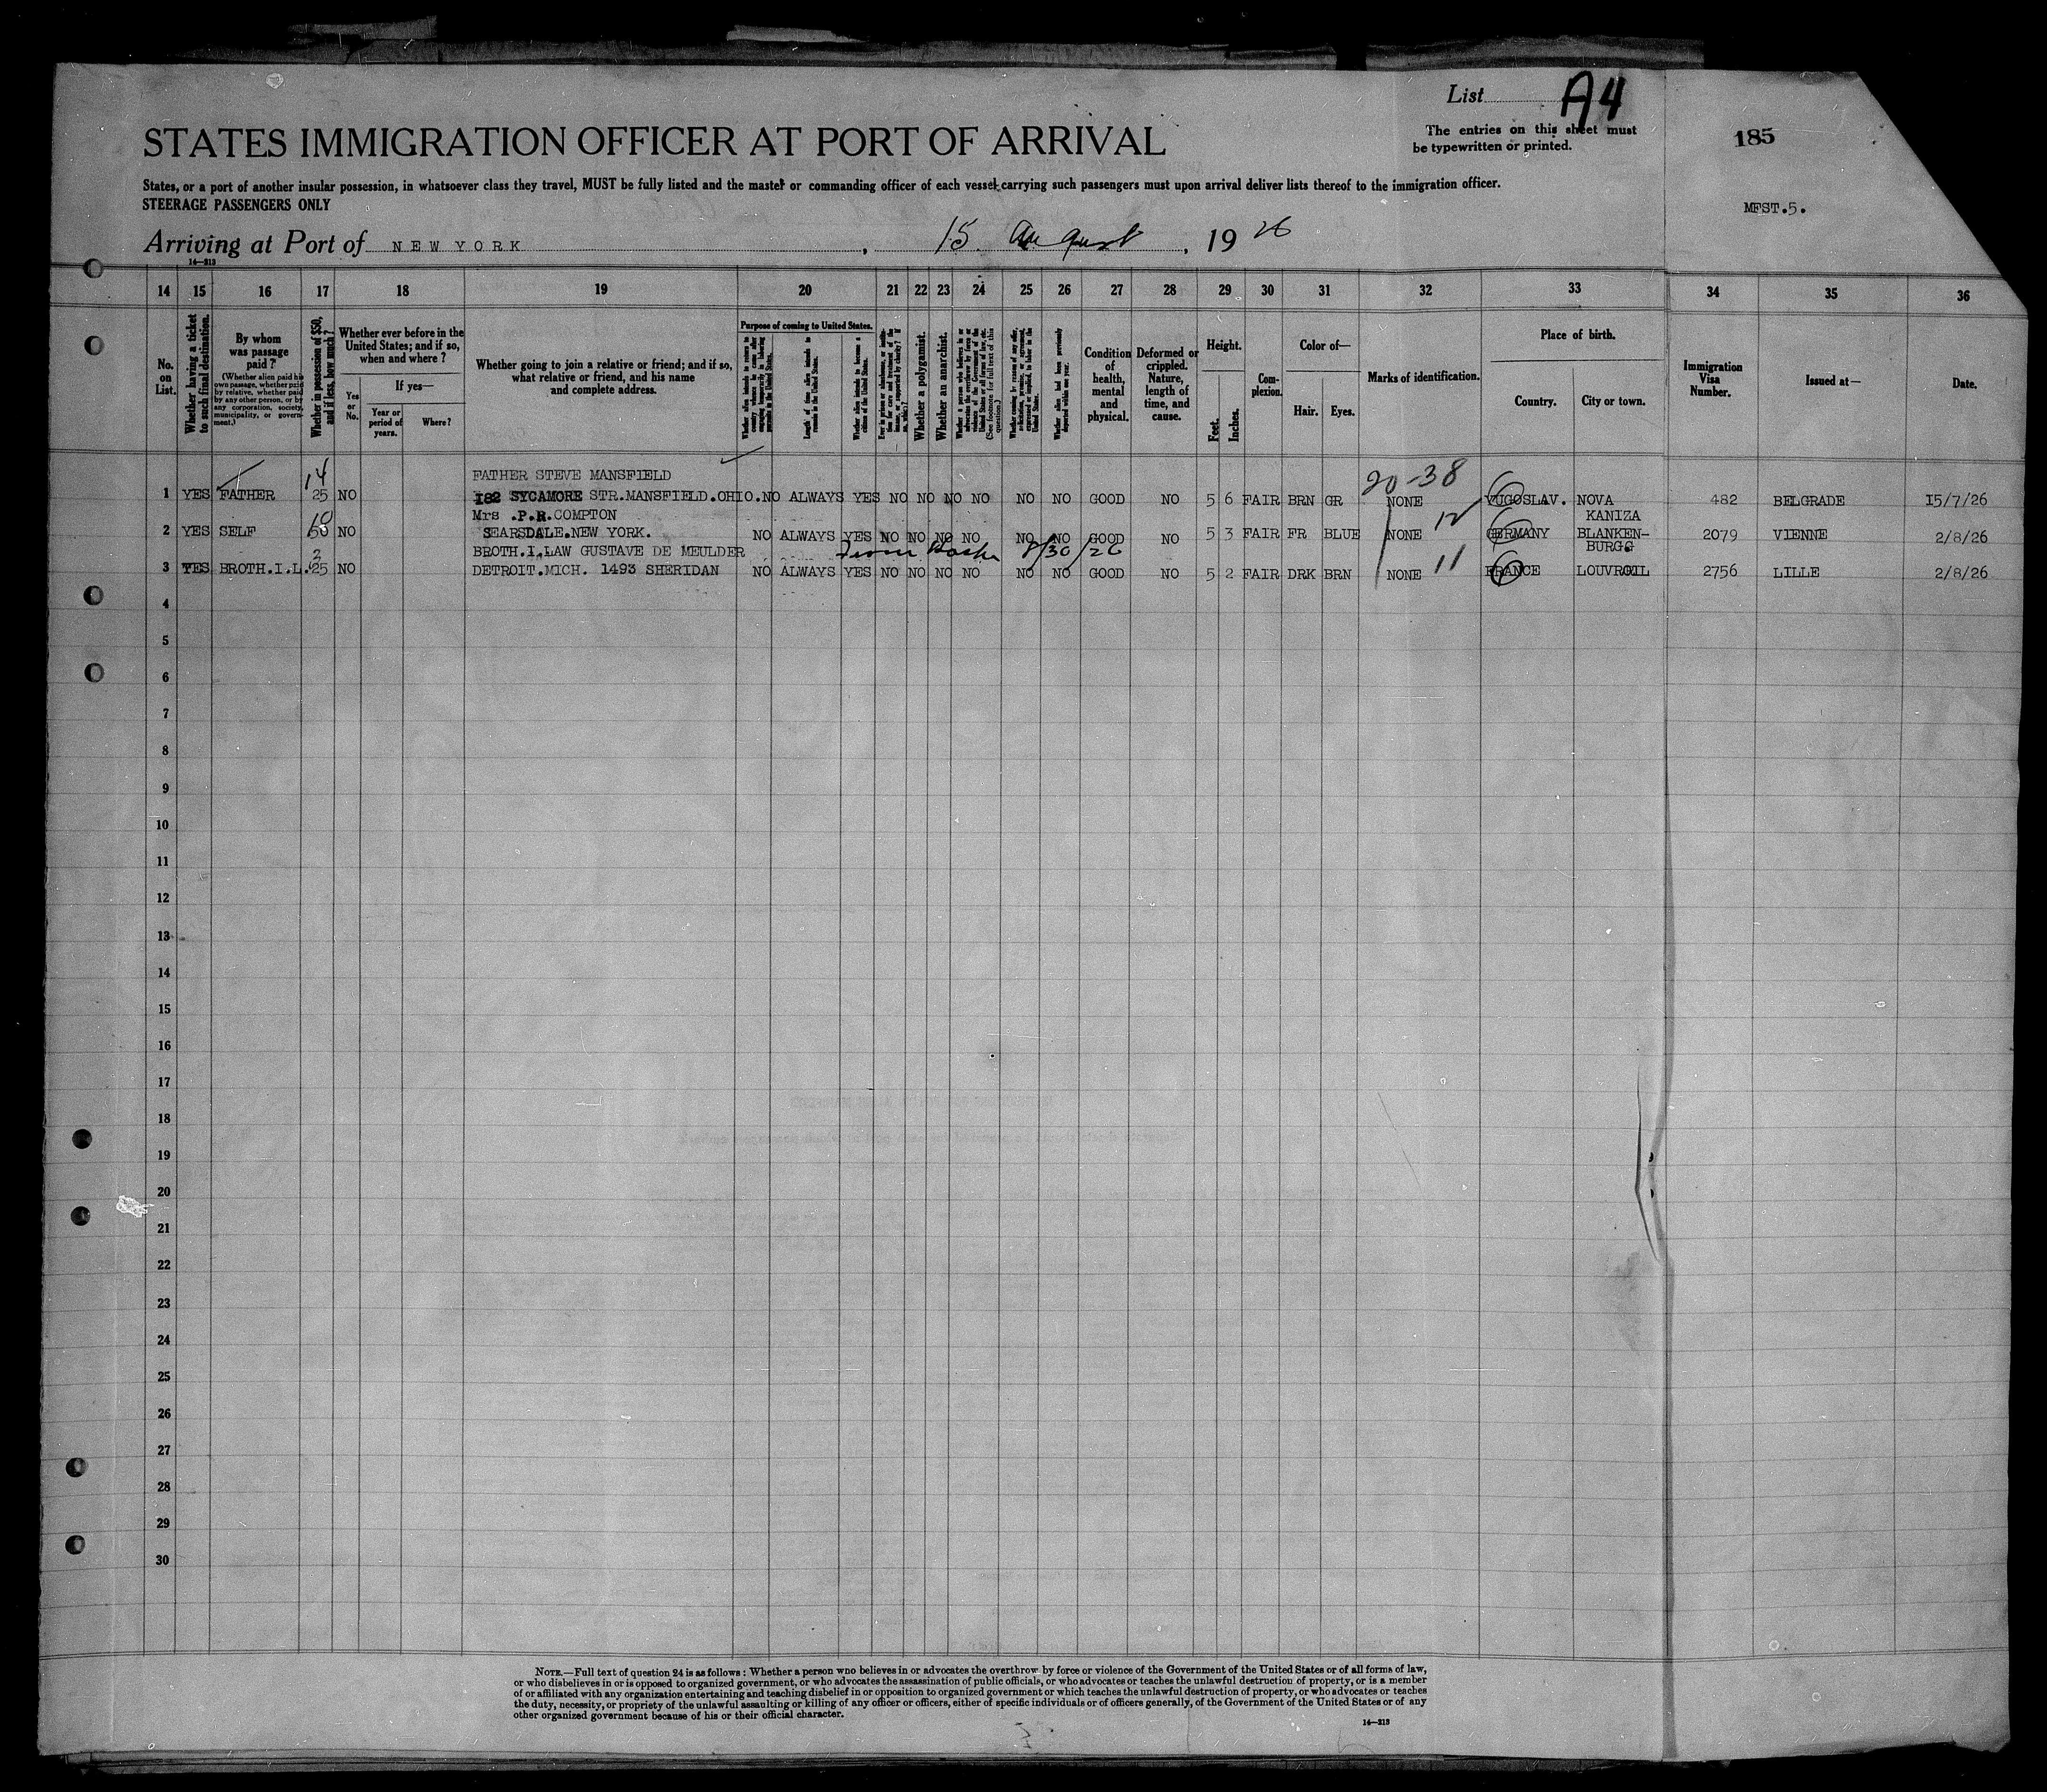 List A4
The entries on this sheet must
be typewritten or printed.
185
STATES IMMIGRATION OFFICER AT PORT OF ARRIVAL
States, or a port of another insular possession, in whatsoever class they travel, MUST be fully listed and the master or commanding officer of each vessel carrying such passengers must upon arrival deliver lists thereof to the immigration officer.
STEERAGE PASSENGERS ONLY
MFST.5.
Arriving at Port of NEW YORK, 15 August, 1926
14—213
14 15 16 17 18 19 20 21 22 23 24 25 26 27 28 29 30 31 32 33 34 35 36
No. on List.
Whether having a ticket to such final destination.
By whom was passage paid?
(Whether alien paid his own passage, whether paid by relative, whether paid by any other person, or by any corporation, society, municipality, or government.)
Whether in possession of $50, and if less, how much?
Whether ever before in the United States; and if so, when and where?
Yes or No.
If yes—
Year or period of years.
Where?
Whether going to join a relative or friend; and if so, what relative or friend, and his name and complete address.
Purpose of coming to United States.
Length of time alien intends to remain in the United States.
Whether alien intends to become a citizen of the United States.
Whether a polygamist.
Whether an anarchist.
Condition of health, mental and physical.
Deformed or crippled. Nature, length of time, and cause.
Height.
Feet.
Inches.
Complexion.
Color of—
Hair.
Eyes.
Marks of identification.
Place of birth.
Country.
City or town.
Immigration Visa Number.
Issued at—
Date.
14
FATHER STEVE MANSFIELD
20-38
1 YES FATHER 25 NO 182 SYCAMORE STR.MANSFIELD.OHIO. NO ALWAYS YES NO NO NO NO NO NO GOOD NO 5 6 FAIR BRN GR NONE YUGOSLAV. NOVA KANIZA 482 BELGRADE 15/7/26
Mrs .P.R.COMPTON
2 YES SELF 50 NO SEARSDALE.NEW YORK. NO ALWAYS YES NO NO NO NO NO NO GOOD NO 5 3 FAIR FR BLUE NONE 12 GERMANY BLANKEN-BURGG 2079 VIENNE 2/8/26
BROTH.I.LAW GUSTAVE DE MEULDER
8/30/26
3 YES BROTH.I.L. 25 NO DETROIT.MICH. 1493 SHERIDAN NO ALWAYS YES NO NO NO NO NO NO GOOD NO 5 2 FAIR DRK BRN NONE 11 FRANCE LOUVROIL 2756 LILLE 2/8/26
4
5
6
7
8
9
10
11
12
13
14
15
16
17
18
19
20
21
22
23
24
25
26
27
28
29
30
NOTE.—Full text of question 24 is as follows: Whether a person who believes in or advocates the overthrow by force or violence of the Government of the United States or of all forms of law,
or who disbelieves in or is opposed to organized government, or who advocates the assassination of public officials, or who advocates or teaches the unlawful destruction of property, or is a member
of or affiliated with any organization entertaining and teaching disbelief in or opposition to organized government or which teaches the unlawful destruction of property, or who advocates or teaches
the duty, necessity, or propriety of the unlawful assaulting or killing of any officer or officers, either of specific individuals or of officers generally, of the Government of the United States or of any
other organized government because of his or their official character.
14—213